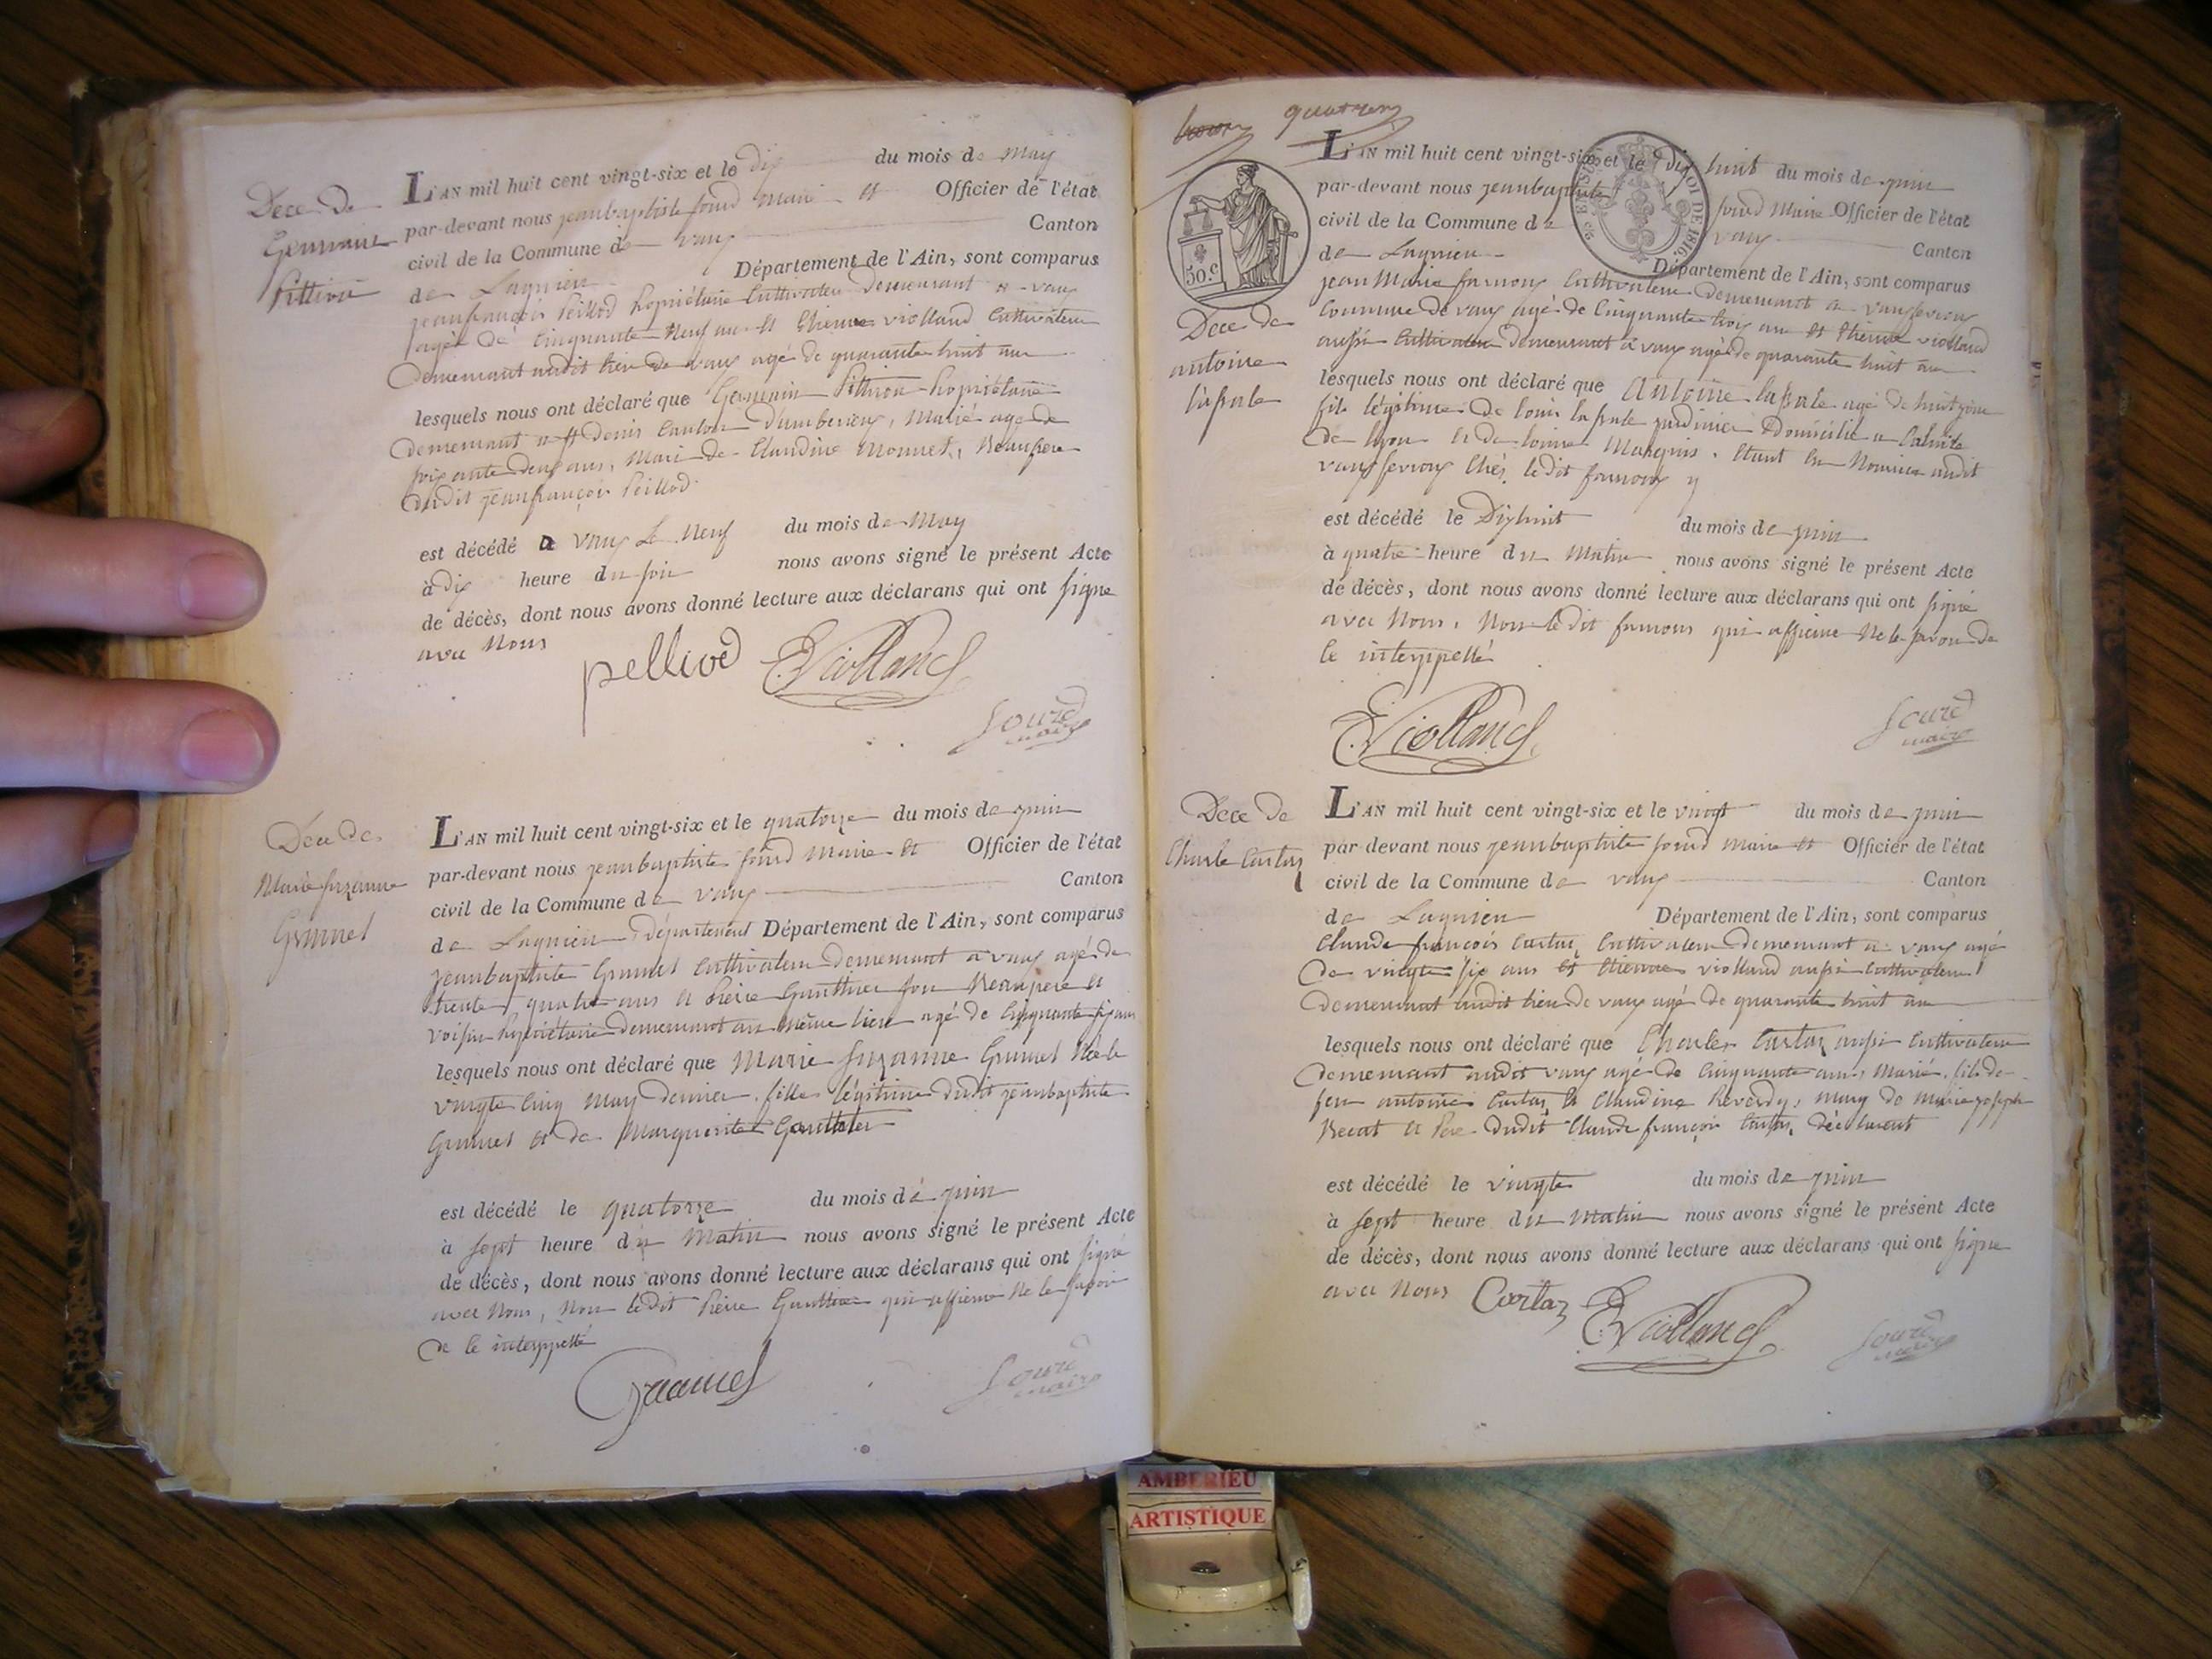 Dece de
Germain
Pittion
L'AN mil huit cent vingt-six et le dix du mois de May
par-devant nous jeanbaptiste fourd Maire et Officier de l'état
civil de la Commune de vaux Canton
de Lagnieu Département de l'Ain, sont comparus
jeanfrançois Peillod Propriétaire Cultivateur Demeurant a vaux
agé de Cinquante Neuf ans et Etienne violland Cultivateur
Demeurant audit lieu de vaux agé de quarante huit ans
lesquels nous ont déclaré que Germain Pittion Propriétaire
demeurant a st denis Canton D'amberieux, Marié agé de
soixante deux ans, Mari de Claudine Monnet, Beaupere
dudit jeanfrançois Peillod
est décédé a vaux Le Neuf du mois de May
à dix heure du soir nous avons signé le présent Acte
de décès, dont nous avons donné lecture aux déclarans qui ont signé
avec Nous
pelliod EViolland
fourd
maire
Dece de
Marie suzanne
Grumel
L'AN mil huit cent vingt-six et le quatorze du mois de juin
par-devant nous jeanbaptiste fourd Maire et Officier de l'état
civil de la Commune de vaux Canton
de Lagnieu département Département de l'Ain, sont comparus
jeanbaptiste Grumel Cultivateur demeurant a vaux agé de
trente quatre ans et Pierre Gauthier son Beaupere et
voisin Propriétaire demeurant au même lieu agé de Cinquante six ans
lesquels nous ont déclaré que Marie suzanne Grumel Née le
vingte Cinq May dernier, fille légitime dudit jeanbaptiste
Grumel et de Marguerite Gauthier
est décédé le quatorze du mois de juin
à sept heure du Matin nous avons signé le présent Acte
de décès, dont nous avons donné lecture aux déclarans qui ont signé
avec Nous, Non ledit Pierre Gauthier qui affirme Ne le savoir
de ce interppellé
Grumel
fourd
maire
quatrem
L'AN mil huit cent vingt-six et le dix huit du mois de juin
par-devant nous jeanbaptiste fourd Maire Officier de l'état
civil de la Commune de vaux Canton
de Lagnieu Département de l'Ain, sont comparus
LOI DE 1816
50.c
Dece de
antoine
lapale
jean Marie famoux Cultivateur demeurant a vauxfevroux
Commune de vaux agé de Cinquante trois ans et Etienne violland
aussi Cultivateur demeurant a vaux agé de quarante huit ans
lesquels nous ont déclaré que Antoine lapale agé de huit jours
fils légitime de louis lapale jardinier Domicilié a
de lyon et de louise Marquis. Etant En Nourrice audit
vauxfevroux Chés ledit famoux y
est décédé le Dixhuit du mois de juin
à quatre heure du Matin nous avons signé le présent Acte
de décès, dont nous avons donné lecture aux déclarans qui ont signé
avec Nous, Non ledit famoux qui affirme Ne le savoir de
ce interppellé
EViolland
fourd
maire
Dece de
Charle Cartaz
L'AN mil huit cent vingt-six et le vingt du mois de juin
par devant nous jeanbaptiste fourd maire et Officier de l'état
civil de la Commune de vaux Canton
de Lagnieu Département de l'Ain, sont comparus
Claude françois Cartaz Cultivateur demeurant a vaux agé
de vingte six ans et Etienne violland aussi Cultivateur
demeurant audit lieu de vaux agé de quarante huit ans
lesquels nous ont déclaré que Charles Cartaz aussi Cultivateur
demeurant audit vaux agé de Cinquante ans, Marié, fils de
feu antoine Cartaz et Claudine Reverdy, mary de marie joseph
Becat et Pere dudit Claude françois Cartaz, déclarant
est décédé le vingte du mois de juin
à sept heure du Matin nous avons signé le présent Acte
de décès, dont nous avons donné lecture aux déclarans qui ont signé
avec Nous
Cartaz EViolland
fourd
maire
AMBERIEU
ARTISTIQUE